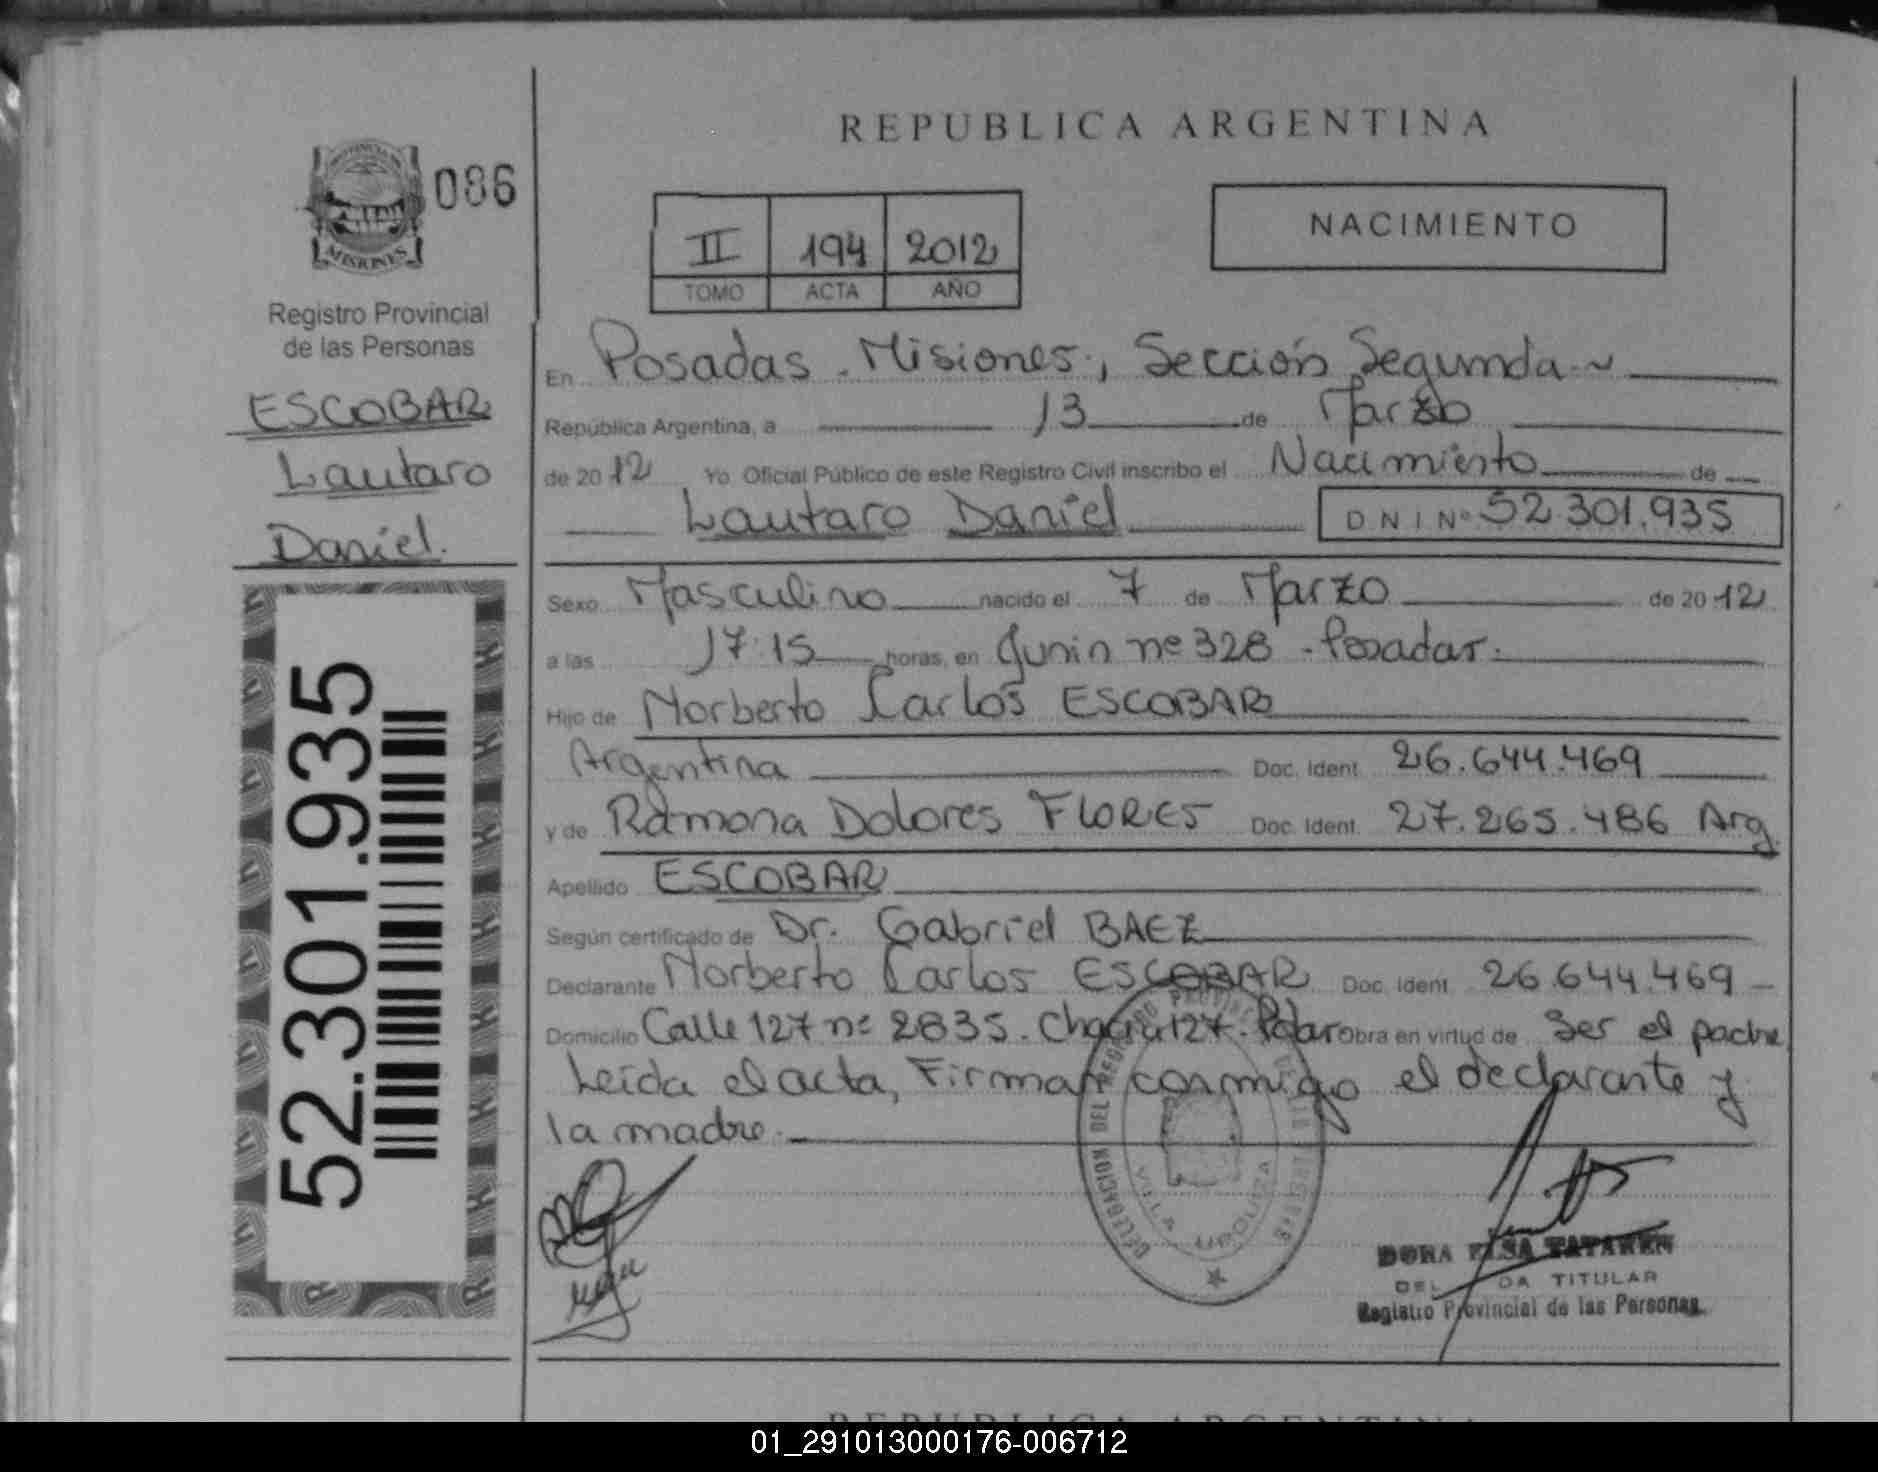 REPUBLICA ARGENTINA
086
MISIONES
Registro Provincial
de las Personas
ESCOBAR
Lautaro
Daniel.
52.301.935
II 194 2012
TOMO ACTA AÑO
NACIMIENTO
En Posadas. Misiones, Sección Segunda
República Argentina, a 13 de Marzo
de 2012 Yo Oficial Público de este Registro Civil inscribo el Nacimiento de
Lautaro Daniel DNI Nº 52.301.935
Sexo Masculino nacido el 7 de Marzo de 2012
a las 17:15 horas, en Junin nº 328 - Posadas.
Hijo de Norberto Carlos ESCOBAR
Argentina Doc. Ident. 26.644.469
y de Ramona Dolores FLORES Doc. Ident. 27.265.486 Arg.
Apellido ESCOBAR
Según certificado de Dr. Gabriel BAEZ
Declarante Norberto Carlos ESCOBAR Doc. Ident. 26.644.469
Domicilio Calle 127 nº 2835. 127. Obra en virtud de Ser el padre
Leída el acta, Firman conmigo el declarante y
la madre.
DELEGACION DEL REGISTRO PROVINCIAL DE LAS PERSONAS
VILLA URQUIZA
DORA ELSA
TITULAR
Registro Provincial de las Personas
REPUBLICA ARGENTINA
01_291013000176-006712